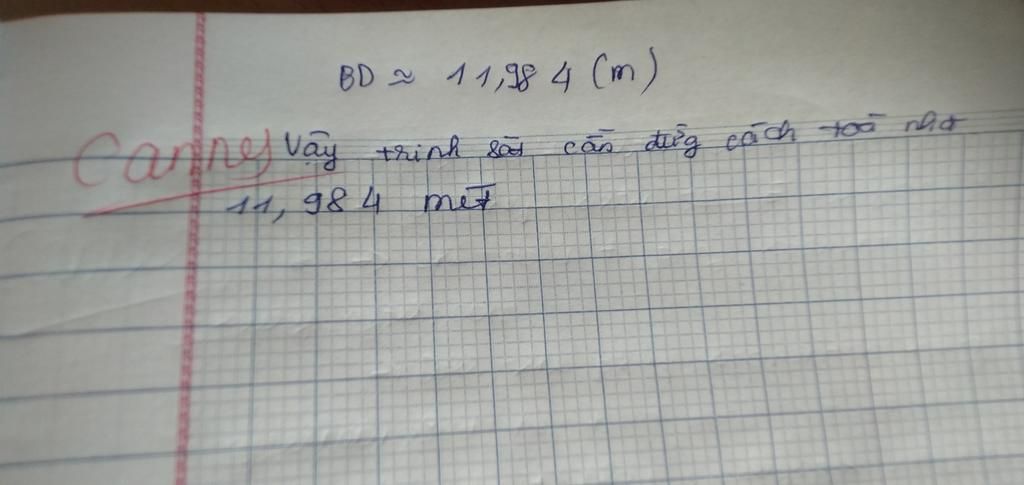 BD ≈ 11,984 (m)
Canny Vậy trinh sát cần đứg cách toà nhà
11,984 mét